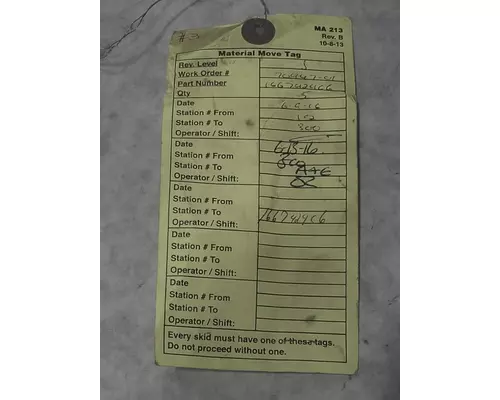 MA 213
Rev. B
10-6-13
Material Move Tag
Rev. Level
Work Order #
Part Number 1667929C6
Qty 5
Date 6-9-16
Station # From
Station # To 12
Operator / Shift: 300
Date
Station # From
Station # To
Operator / Shift:
Date
Station # From
Station # To 1667929C6
Operator / Shift:
Date
Station # From
Station # To
Operator / Shift:
Date
Station # From
Station # To
Operator / Shift:
Every skid must have one of these tags.
Do not proceed without one.